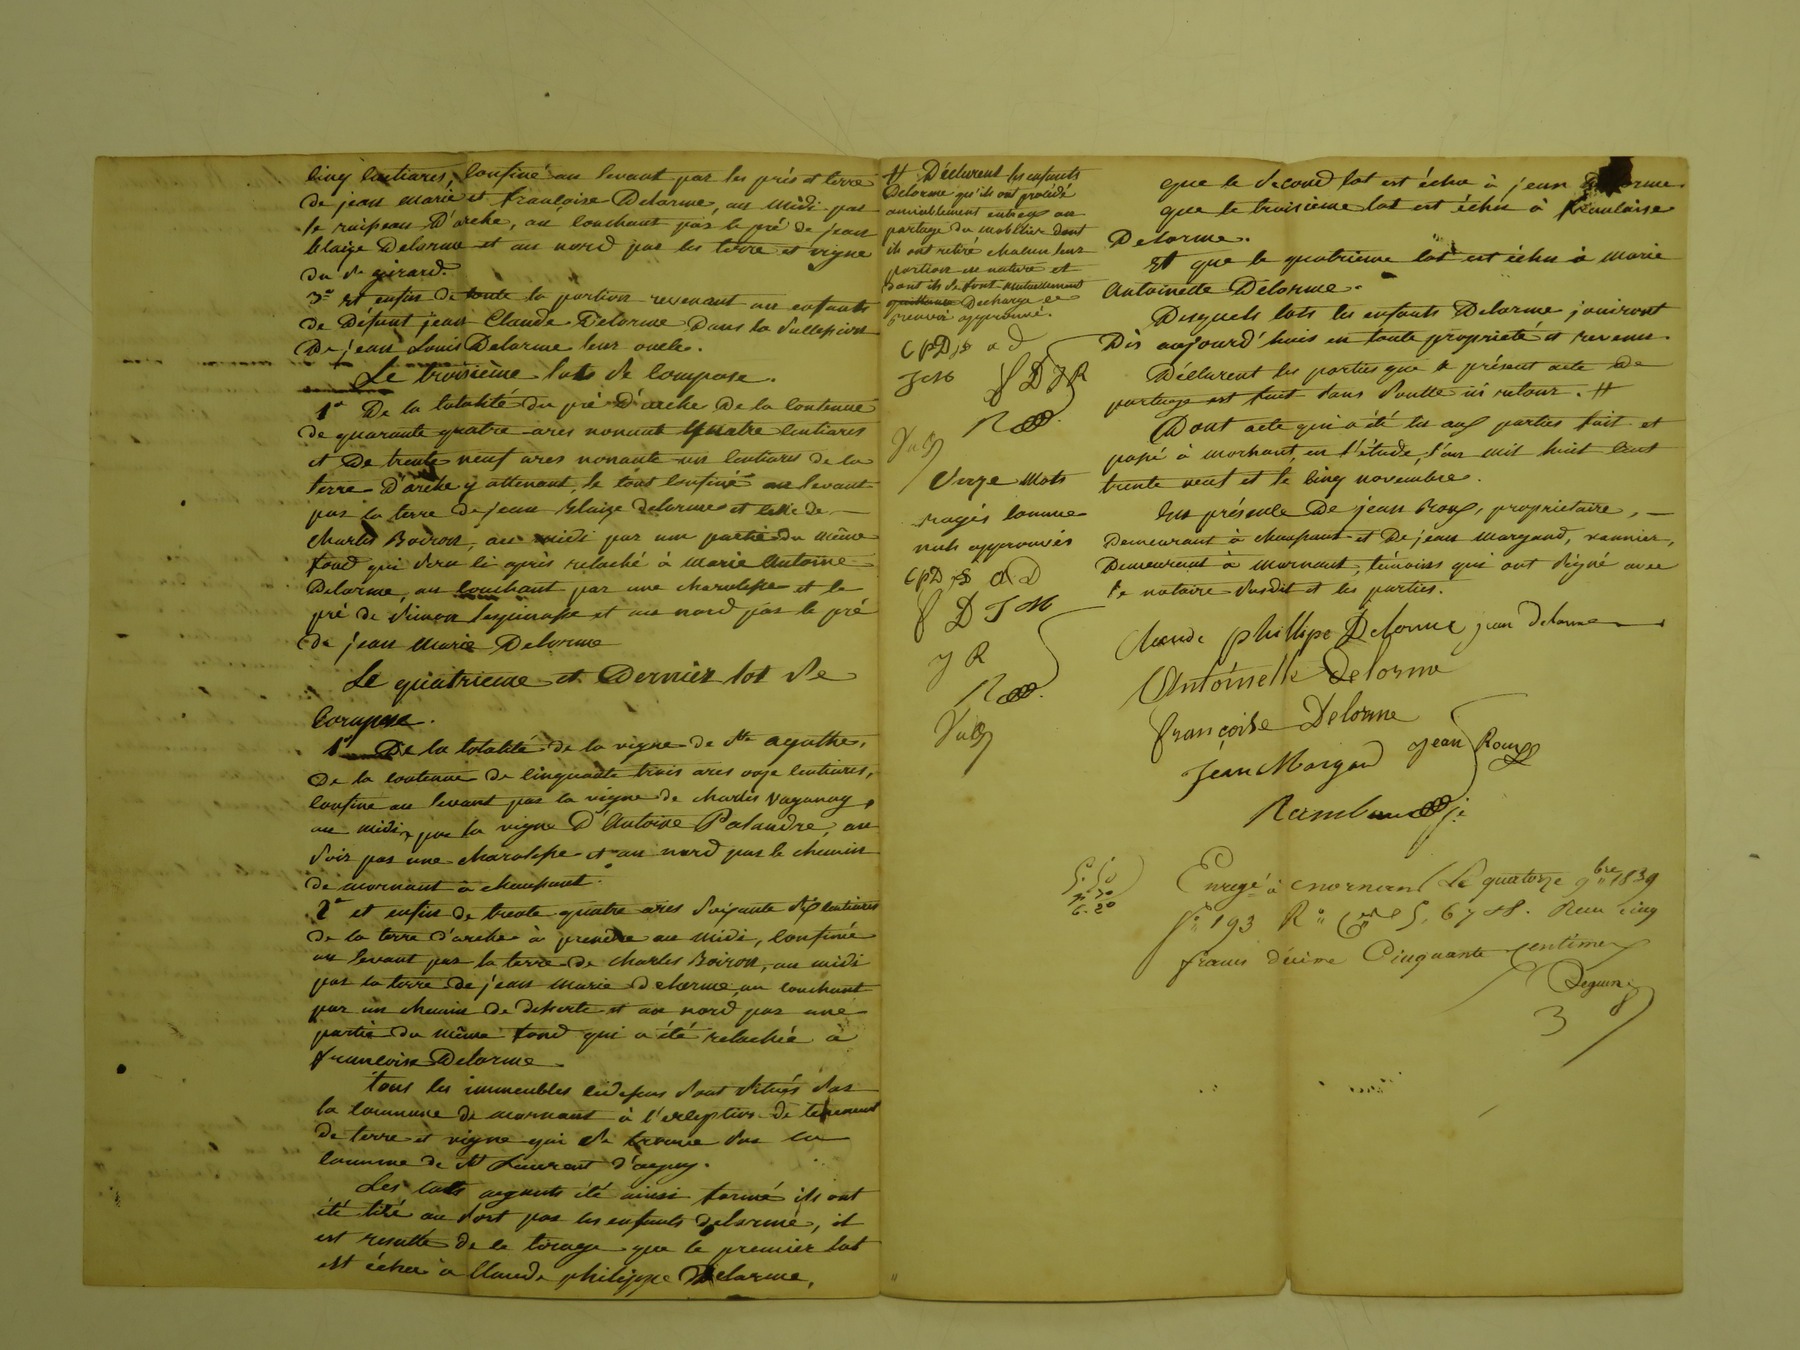 cinq centiares, confiné au levant par les prés et terre
de jean marie et francoise Delorme, au midi par
le ruisseau D'arche, au couchant par le pré de jean
blaize Delorme et au nord par les terre et vigne
du Sr girard.
3° et enfin de toute la portion revenant aux enfants
de Défunt jean Claude Delorme Dans la Succession
De jean Louis Delorme leur oncle.
Le troisième lots se compose.
1° De la totalité du pré D'arche De la contenue
de quarante quatre ares nonante quatre centiares
et De trente neuf ares nonante un centiares de la
terre D'arche y attenant, le tout confiné au levant
par la terre de jean blaize delorme et celle de
charles Boiron, au midi par une partie du même
fond qui sera ci après relaché à marie antoine
Delorme, au couchant par une charolesse et le
pré de Simon lespinasse et au nord par le pré
de jean marie Delorme
Le quatrieme et Dernier lot se
compose.
1° De la totalité de la vigne de Ste agathe,
De la contenue de cinquante trois ares onze centiares,
confine au levant par la vigne de charles vaganay,
au midi, par la vigne D'antoine Palandre, au
soir par une charolesse et au nord par le chemin
de mornant à chaussant.
2° et enfin de trente quatre ares soixante dix centiares
de la terre d'arche à prendre au midi, confinée
au levant par la terre de charles Boiron, au midi
par la terre de jean marie delorme, au couchant
par un chemin de desserte et au nord par une
partie du même fond qui a été relachée à
francoise Delorme.
tous les immeubles cidessus sont situés sur
la commune de mornant à l'exception de tenement
de terre et vigne qui se trouve sur la
commune de St Laurent d'agny.
Les lots ayants été ainsi formé ils ont
été tiré au sort par les enfants delorme, il
est resulté de le tirage que le premier lot
est échu à Claude philippe Delorme,
# Déclarent les enfants
Delorme qu'ils ont procédé
amiablement entreux au
partage du mobilier dont
ils ont retiré chacun leur
portion en nature et
dont ils se font mutuellement
quittance Decharge ce
renvoi approuvé.
CPD JD a d
JM f D JR
R
Seize mots
rayés comme
nuls approuvés
CPD JD a D
f D JM
J R
R
que le second lot est échu à jean Delorme.
que le troisième lot est échu à francoise
Delorme.
Et que le quatrieme lot est échu à marie
Antoinette Delorme.
Desquels lots les enfants Delorme jouiront
Dès aujourd'huis en toute propriété et revenu.
Déclarent les parties que le présent acte de
partage est fait sans soulte ni retour. #
Dont acte qui a été lu aux parties fait et
passé à mornant, en l'étude, l'an mil huit cent
trente neuf et le cinq novembre.
En présence De jean Roux, propriétaire,
Demeurant à chaussant et De jean margand, vannier,
Demeurant à mornant, témoins qui ont signé avec
le notaire susdit et les parties.
Claude phillipe Delorme jean delorme
Antoinette Delorme
françoise Delorme
Jean Margand Jean Roux
5. 50
6. 20
Enregé à mornant Le quatorze 9bre 1839
fo 193 Ro Reçu cinq
francs décime Cinquante centimes
3